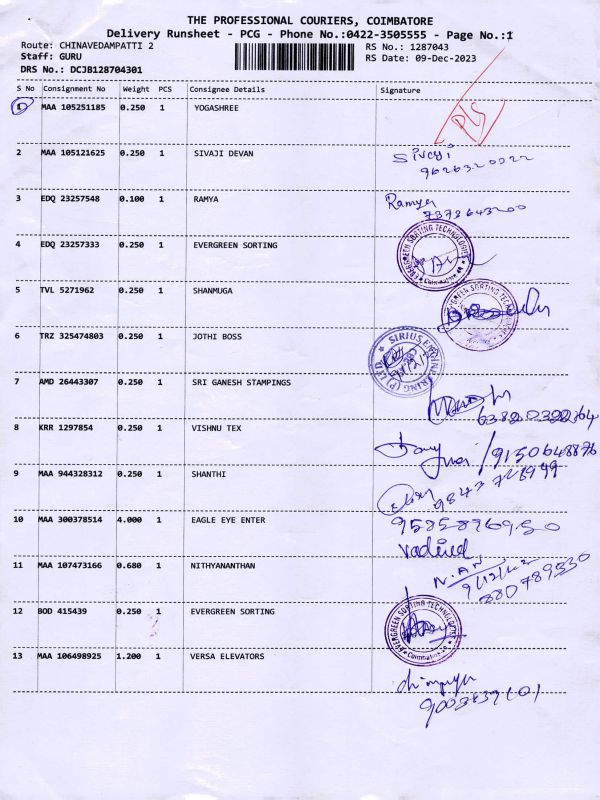 THE PROFESSIONAL COURIERS, COIMBATORE
Delivery Runsheet - PCG - Phone No.:0422-3505555 - Page No.:1
Route: CHINAVEDAMPATTI 2 RS No.: 1287043
Staff: GURU RS Date: 09-Dec-2023
DRS No.: DCJB128704301
S No Consignment No Weight PCS Consignee Details Signature
1 MAA 105251185 0.250 1 YOGASHREE
2 MAA 105121625 0.250 1 SIVAJI DEVAN
3 EDQ 23257548 0.100 1 RAMYA Ramya
4 EDQ 23257333 0.250 1 EVERGREEN SORTING EVERGREEN SORTING TECHNOLOGIES
5 TVL 5271962 0.250 1 SHANMUGA EVERGREEN SORTING
6 TRZ 325474803 0.250 1 JOTHI BOSS SIRIUS ENGINEERING (P) LTD
7 AMD 26443307 0.250 1 SRI GANESH STAMPINGS
8 KRR 1297854 0.250 1 VISHNU TEX
9 MAA 944328312 0.250 1 SHANTHI
10 MAA 300378514 4.000 1 EAGLE EYE ENTER
11 MAA 107473166 0.680 1 NITHYANANTHAN
12 BOD 415439 0.250 1 EVERGREEN SORTING EVERGREEN SORTING TECHNOLOGIES
13 MAA 106498925 1.200 1 VERSA ELEVATORS